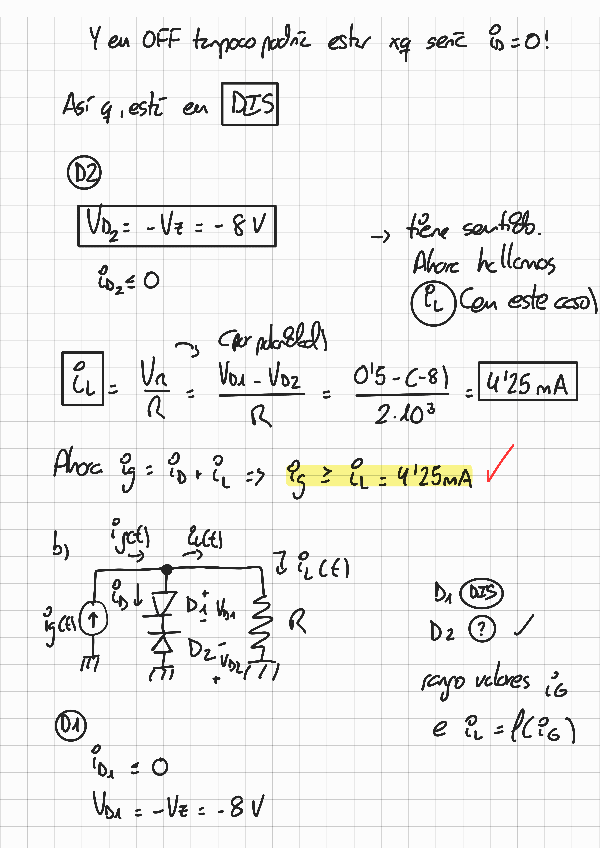 Y en OFF tampoco podría estar xq sería i_D = 0!
Así q, está en DIS
D2
V_D2 = -Vz = -8 V
i_D2 ≤ 0
→ tiene sentido.
Ahora hallamos
i_L (en este caso)
(por polaridad)
i_L = V_R / R = (V_D1 - V_D2) / R = (0'5 - (-8)) / 2·10³ = 4'25 mA
Ahora i_g = i_D + i_L => i_g ≥ i_L = 4'25 mA ✓
b)
i_g(t) → i_L(t) →
i_L(t)
i_g(t) ↑
i_D ↓
D1 + V_D1 -
D2 - V_D2 +
R
D1 DIS
D2 ? ✓
rango valores i_G
e i_L = f(i_G)
D1
i_D1 ≤ 0
V_D1 = -Vz = -8 V